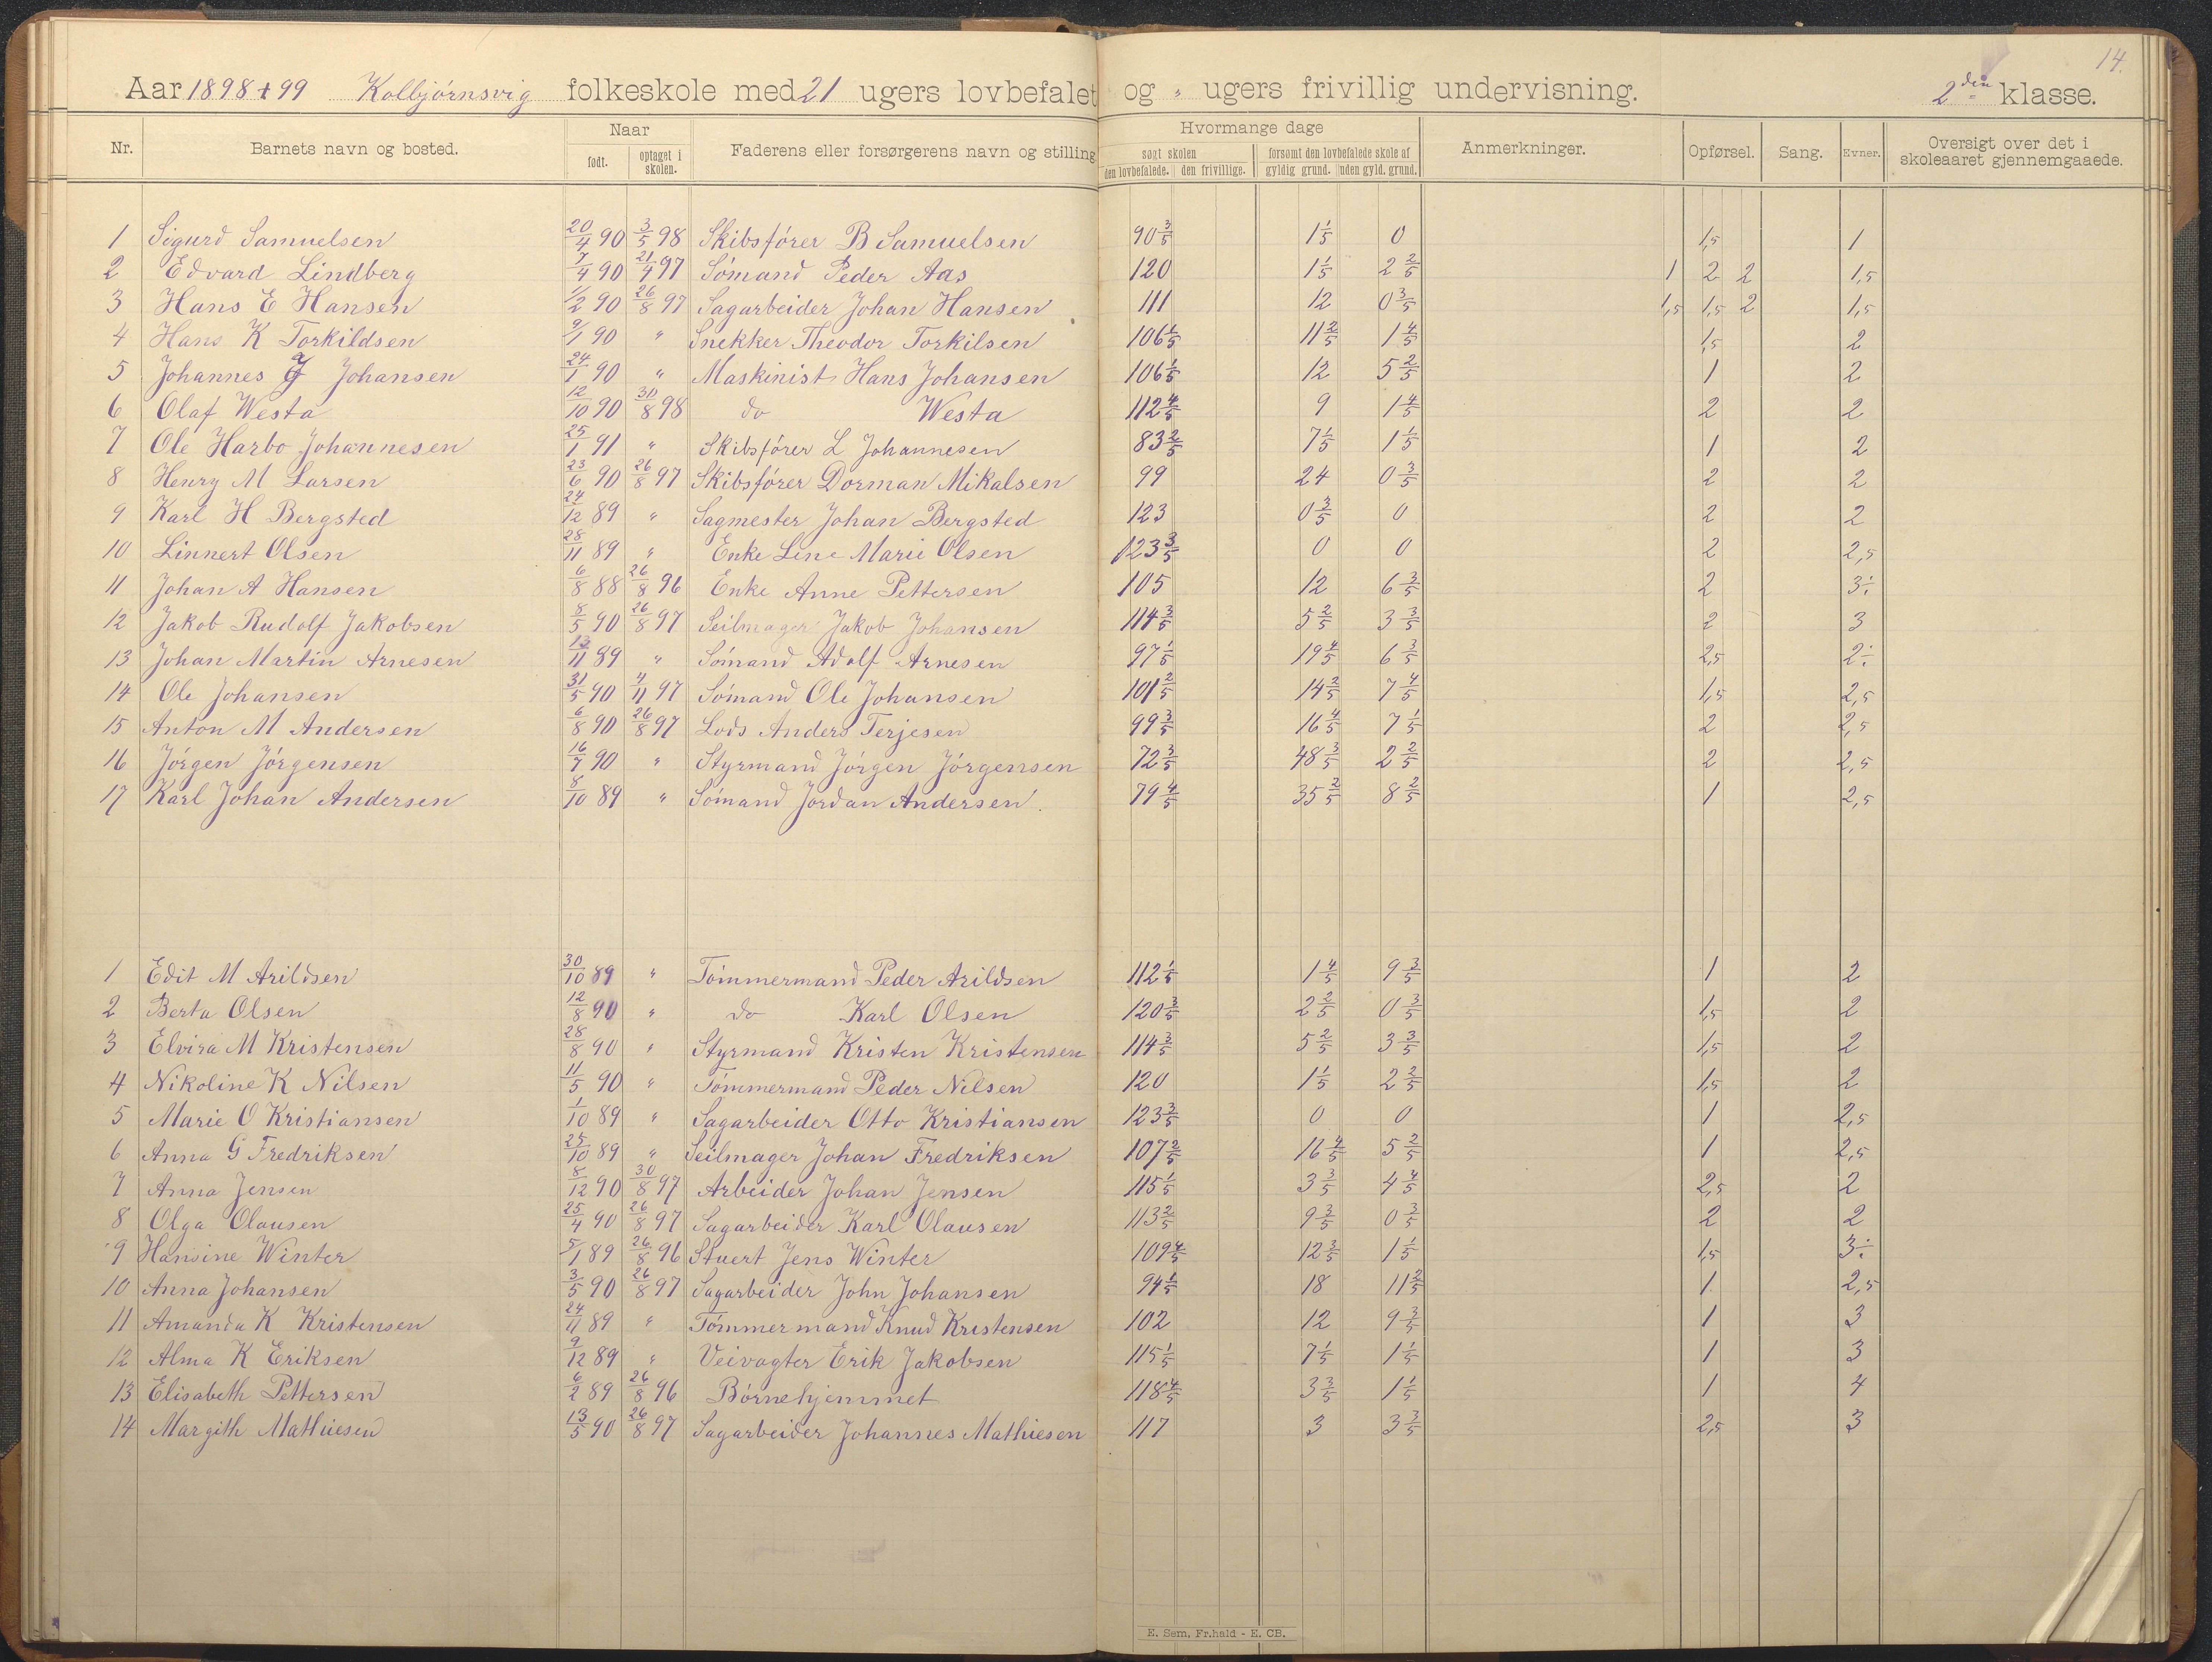 14.
Aar 1898+99 Kolbjörnsvig folkeskole med 21 ugers lovbefalet og " ugers frivillig undervisning. 2den klasse.
Nr. Barnets navn og bosted. Naar født. optaget i skolen. Faderens eller forsørgerens navn og stilling Hvormange dage søgt skolen den lovbefalede. den frivillige. forsømt den lovbefalede skole af gyldig grund. uden gyld. grund. Anmerkninger. Opførsel. Sang. Evner. Oversigt over det i skoleaaret gjennemgaaede.
1 Sigurd Samuelsen 20/4 90 3/5 98 Skibsförer B Samuelsen 90 3/5 1 1/5 0 1,5 1
2 Edvard Lindberg 7/4 90 21/4 97 Sömand Peder Aas 120 1 1/5 2 2/5 1 2 2 1,5
3 Hans E Hansen 1/2 90 26/8 97 Sagarbeider Johan Hansen 111 12 0 3/5 1,5 1,5 2 1,5
4 Hans K Torkildsen 9/1 90 " Snekker Theodor Torkilsen 106 1/5 11 2/5 1 4/5 1,5 2
5 Johannes J Johansen 24/1 90 " Maskinist Hans Johansen 106 1/5 12 5 2/5 1 2
6 Olaf Westa 12/10 90 30/8 98 do Westa 112 4/5 9 1 4/5 2 2
7 Ole Harbo Johannesen 25/1 91 " Skibsförer L Johannesen 83 2/5 7 1/5 1 1/5 1 2
8 Henry M Larsen 23/6 90 26/8 97 Skibsförer Dorman Mikalsen 99 24 0 3/5 2 2
9 Karl H Bergsted 24/12 89 " Sagmester Johan Bergsted 123 0 3/5 0 2 2
10 Linnert Olsen 28/11 89 " Enke Line Marie Olsen 123 3/5 0 0 2 2,5
11 Johan A Hansen 6/8 88 26/8 96 Enke Anne Pettersen 105 12 6 3/5 2 3÷
12 Jakob Rudolf Jakobsen 8/5 90 26/8 97 Seilmager Jakob Johansen 114 3/5 5 2/5 3 3/5 2 3
13 Johan Martin Arnesen 13/11 89 " Sömand Adolf Arnesen 97 1/5 19 4/5 6 3/5 2,5 2÷
14 Ole Johansen 31/5 90 4/11 97 Sömand Ole Johansen 101 2/5 14 2/5 7 4/5 1,5 2,5
15 Anton M Andersen 6/8 90 26/8 97 Lods Anders Terjesen 99 3/5 16 4/5 7 1/5 2 2,5
16 Jörgen Jörgensen 16/7 90 " Styrmand Jörgen Jörgensen 72 3/5 48 3/5 2 2/5 2 2,5
17 Karl Johan Andersen 8/10 89 " Sömand Jordan Andersen. 79 4/5 35 2/5 8 2/5 1 2,5
1 Edit M Arildsen 30/10 89 " Tömmermand Peder Arildsen 112 1/5 1 4/5 9 3/5 1 2
2 Berta Olsen 12/8 90 " do Karl Olsen 120 3/5 2 2/5 0 3/5 1,5 2
3 Elvira M Kristensen 28/8 90 " Styrmand Kristen Kristensen 114 3/5 5 2/5 3 3/5 1,5 2
4 Nikoline K Nilsen 11/5 90 " Tömmermand Peder Nilsen 120 1 1/5 2 2/5 1,5 2
5 Marie O Kristiansen 1/10 89 " Sagarbeider Otto Kristiansen 123 3/5 0 0 1 2,5
6 Anna G Fredriksen 25/10 89 " Seilmager Johan Fredriksen 107 2/5 16 4/5 5 2/5 1 2,5
7 Anna Jensen 8/12 90 30/8 97 Arbeider Johan Jensen 115 1/5 3 3/5 4 4/5 2,5 2
8 Olga Olausen 25/4 90 26/8 97 Sagarbeider Karl Olausen 113 2/5 9 3/5 0 3/5 2 2
9 Hansine Winter 5/1 89 26/8 96 Stuert Jens Winter 109 4/5 12 3/5 1 1/5 1,5 3÷
10 Anna Johansen 3/5 90 26/8 97 Sagarbeider John Johansen 94 1/5 18 11 2/5 1 2,5
11 Amanda K Kristensen 24/11 89 " Tömmermand Knud Kristensen 102 12 9 3/5 1 3
12 Alma K Eriksen 9/12 89 " Veivagter Erik Jakobsen 115 1/5 7 1/5 1 1/5 1 3
13 Elisabeth Pettersen 6/2 89 26/8 96 Börnehjemmet 118 4/5 3 3/5 1 1/5 1 4
14 Margith Mathiesen 13/5 90 26/8 97 Sagarbeider Johannes Mathiesen 117 3 3 3/5 2,5 3
E. Sem, Fr.hald - E. CB.